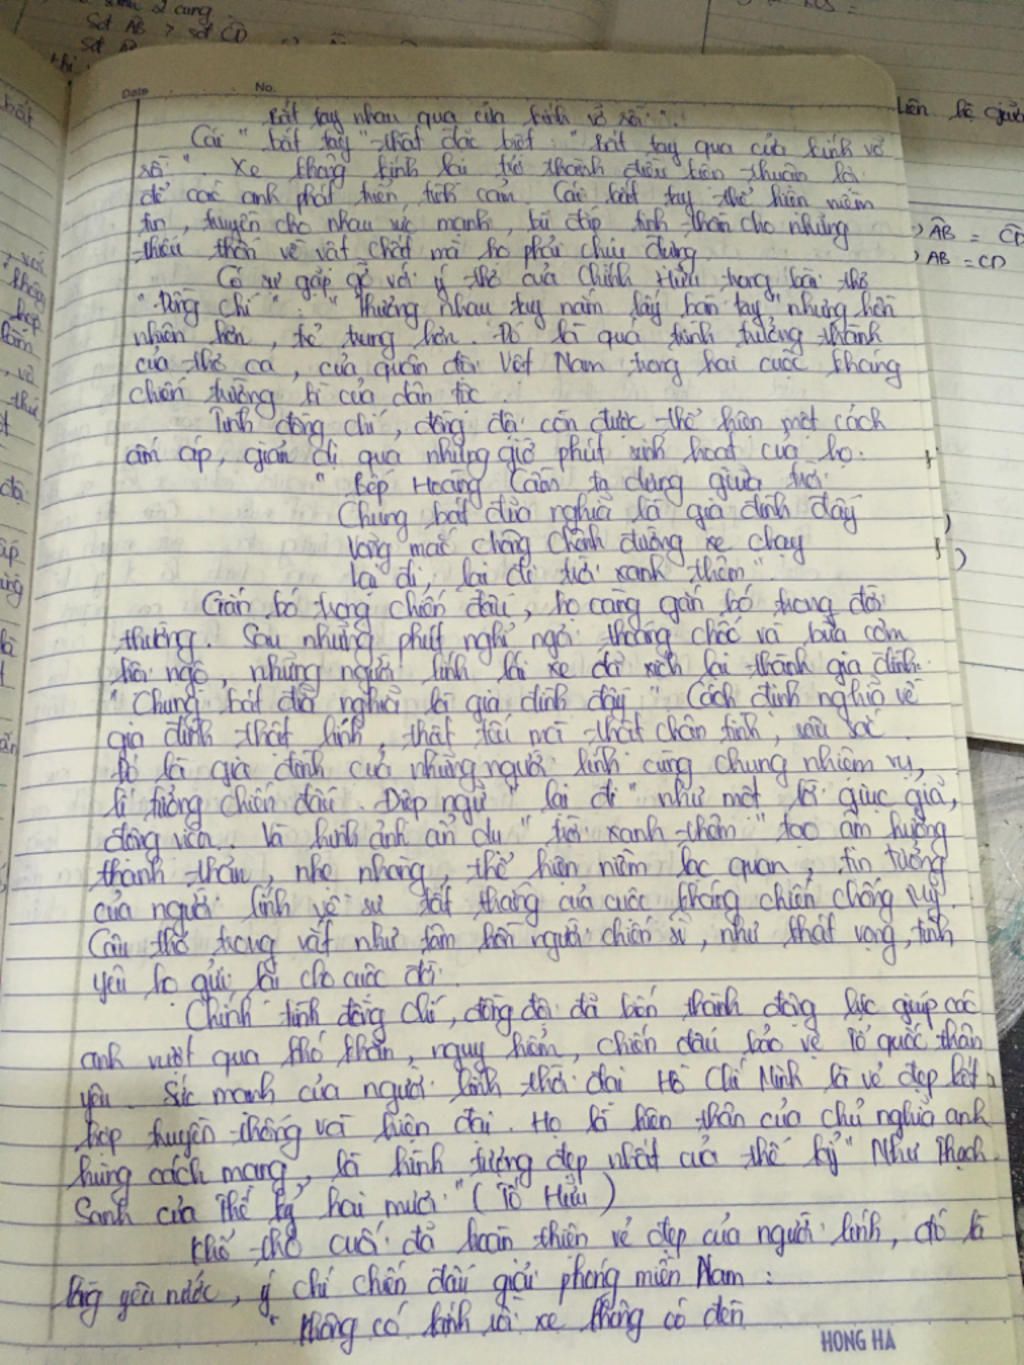 Sđ AB > sđ CD
Date No.
Bắt tay nhau qua cửa kính vỡ rồi..
Cái "bắt tay" thật đặc biệt "bắt tay qua cửa kính vỡ
rồi". Xe không kính lại trở thành điều kiện thuận lợi
để các anh phát triển tình cảm. Cái bắt tay thể hiện niềm
tin, truyền cho nhau sức mạnh, bù đắp tinh thần cho những
thiếu thốn về vật chất mà họ phải chịu đựng.
Có sự gặp gỡ với ý thơ của Chính Hữu trong bài thơ
"Đồng chí": "Thương nhau tay nắm lấy bàn tay" nhưng hồn
nhiên hơn, trẻ trung hơn. Đó là quá trình trưởng thành
của thơ ca, của quân đội Việt Nam trong hai cuộc kháng
chiến trường kì của dân tộc.
Tình đồng chí, đồng đội còn được thể hiện một cách
ấm áp, giản dị qua những giờ phút sinh hoạt của họ.
"Bếp Hoàng Cầm ta dựng giữa trời
Chung bát đũa nghĩa là gia đình đấy
Võng mắc chông chênh đường xe chạy
Lại đi, lại đi trời xanh thêm".
Gắn bó trong chiến đấu, họ càng gắn bó trong đời
thường. Sau những phút nghỉ ngơi thoáng chốc và bữa cơm
hội ngộ, những người lính lái xe đã xích lại thành gia đình:
"Chung bát đũa nghĩa là gia đình đấy" Cách định nghĩa về
gia đình thật lính, thật tếu mà thật chân tình, sâu sắc.
Đó là gia đình của những người lính cùng chung nhiệm vụ,
lí tưởng chiến đấu. Điệp ngữ "lại đi" như một lời giục giã,
động viên. Và hình ảnh ẩn dụ "trời xanh thêm" tạo âm hưởng
thanh thản, nhẹ nhàng, thể hiện niềm lạc quan, tin tưởng
của người lính về sự tất thắng của cuộc kháng chiến chống Mỹ.
Câu thơ trong vắt như tâm hồn người chiến sĩ, như khát vọng, tình
yêu họ gửi lại cho cuộc đời.
Chính tình đồng chí, đồng đội đã biến thành động lực giúp các
anh vượt qua khó khăn, nguy hiểm, chiến đấu bảo vệ Tổ quốc thân
yêu. Sức mạnh của người lính thời đại Hồ Chí Minh là vẻ đẹp kết
hợp truyền thống với hiện đại. Họ là hiện thân của chủ nghĩa anh
hùng cách mạng, là hình tượng đẹp nhất của thế kỷ "Như Thạch
Sanh của thế kỷ hai mươi" (Tố Hữu)
Khổ thơ cuối đã hoàn thiện vẻ đẹp của người lính, đó là
lòng yêu nước, ý chí chiến đấu giải phóng miền Nam:
"Không có kính rồi xe không có đèn
HONG HA
Liên hệ giữa
AB = CD
AB = CD